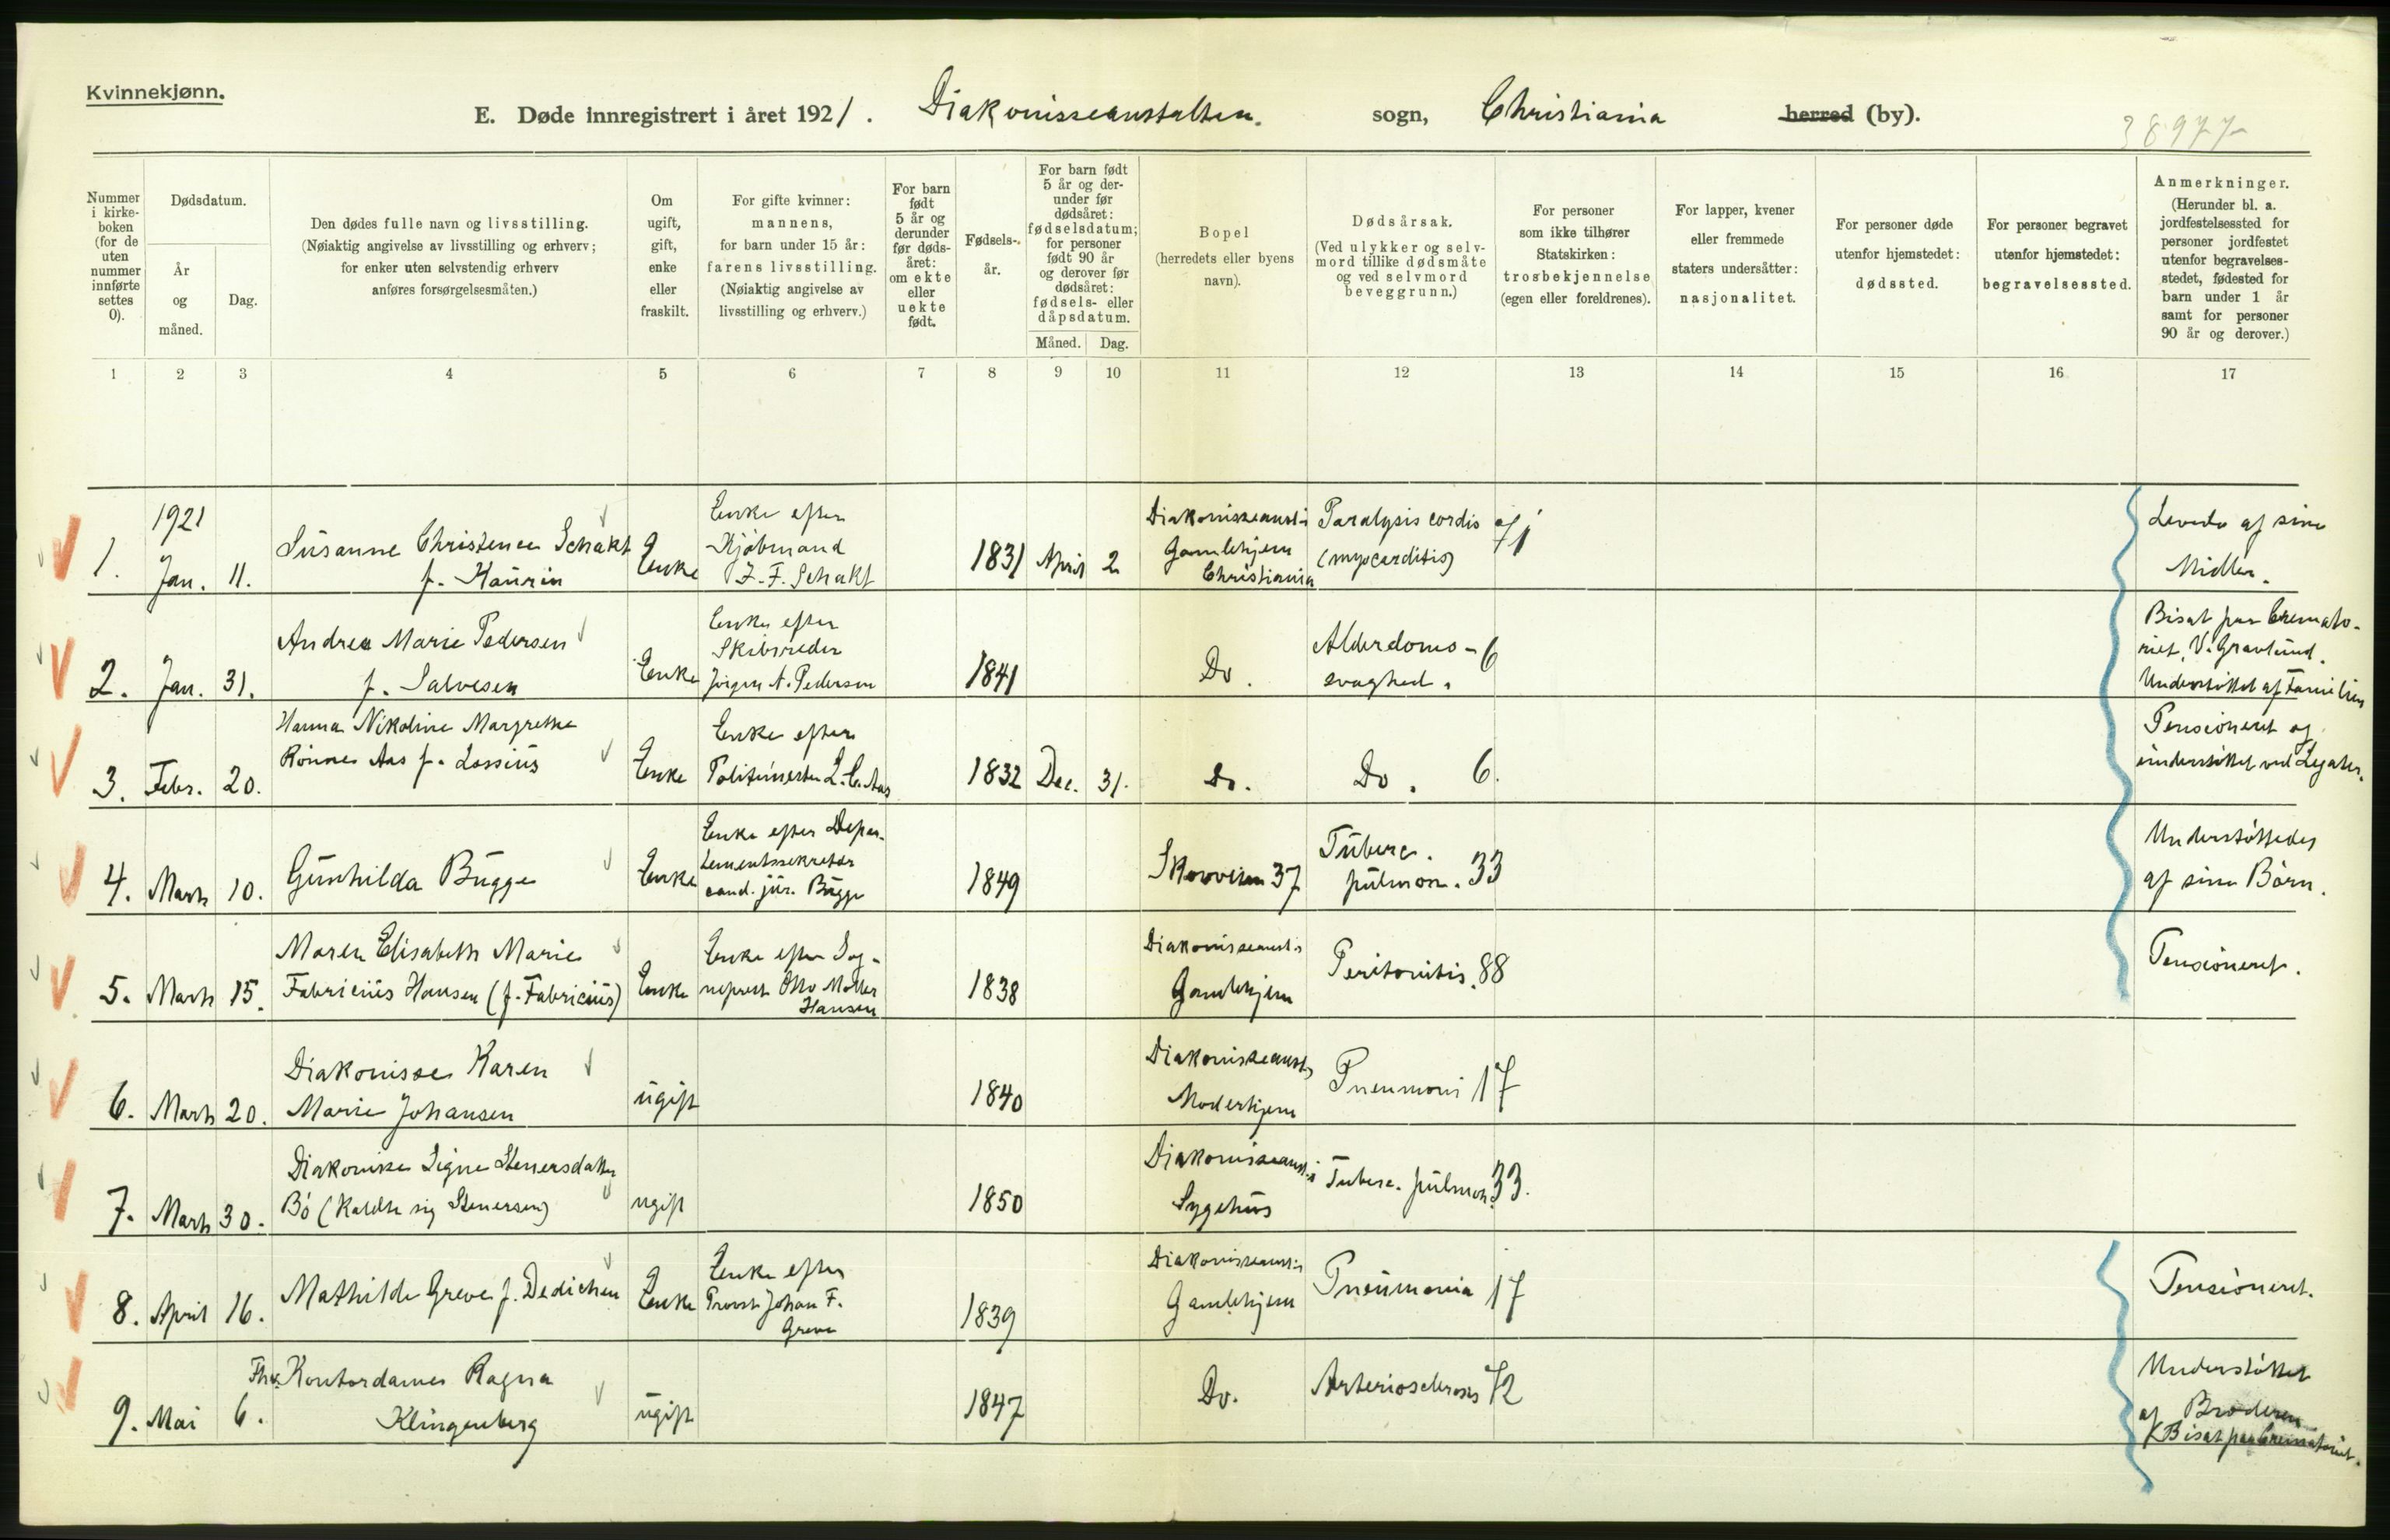 Kvinnekjønn.
E. Døde innregistrert i året 1921. Diakonisseanstalten. sogn, Christiania herred (by).
38977
Nummer i kirkeboken (for de uten nummer innførte settes 0).
Dødsdatum.
År og måned.
Dag.
Den dødes fulle navn og livsstilling.
(Nøiaktig angivelse av livsstilling og erhverv;
for enker uten selvstendig erhverv
anføres forsørgelsesmåten.)
Om ugift, gift, enke eller fraskilt.
For gifte kvinner:
mannens,
for barn under 15 år:
farens livsstilling.
(Nøiaktig angivelse av
livsstilling og erhverv.)
For barn født 5 år og derunder før dødsåret: om ekte eller uekte født.
Fødsels-år.
For barn født 5 år og derunder før dødsåret: fødselsdatum; for personer født 90 år og derover før dødsåret: fødsels- eller dåpsdatum.
Måned. Dag.
Bopel
(herredets eller byens
navn).
Dødsårsak.
(Ved ulykker og selv-
mord tillike dødsmåte
og ved selvmord
beveggrunn.)
For personer
som ikke tilhører
Statskirken:
trosbekjennelse
(egen eller foreldrenes).
For lapper, kvener
eller fremmede
staters undersåtter:
nasjonalitet.
For personer døde
utenfor hjemstedet:
dødssted.
For personer begravet
utenfor hjemstedet:
begravelsessted.
Anmerkninger.
(Herunder bl. a.
jordfestelsessted for
personer jordfestet
utenfor begravelses-
stedet, fødested for
barn under 1 år
samt for personer
90 år og derover.)
1 2 3 4 5 6 7 8 9 10 11 12 13 14 15 16 17
1921
1. Jan. 11.
Susanne Christence Schakt
f. Kaurin
Enke
Enke efter
Kjøbmand
J. F. Schakt
1831 April 2
Diakonisseanst.s
Gamlehjem
Christiania
Paralysis cordis
(myocarditis)
71
Levede af sine
Midler.
2. Jan. 31.
Andrea Marie Pedersen
f. Salvesen
Enke
Enke efter
Skibsreder
Jørgen A. Pedersen
1841
Do.
Alderdoms-
svaghed.
6
Bisat paa Cremato-
riet, V. Gravlund.
Understøttet af Familien
3. Febr. 20.
Hanna Nikoline Margrethe
Rønnes Aas f. Lossius
Enke
Enke efter
Politimester L. C. Aas
1832 Dec. 31.
Do.
Do. 6.
Pensioneret og
understøttet ved Legater.
4. Marts 10.
Gunhilda Bugge
Enke
Enke efter Depar-
tementssekretær
cand. jur. Bugge
1849
Skovveien 37
Tuberc.
pulmon. 33
Understøttedes
af sine Børn.
5. Marts 15.
Maren Elisabeth Marie
Fabricius Hansen (f. Fabricius)
Enke
Enke efter Sog-
neprest Otto Møller
Hansen
1838
Diakonisseanst.s
Gamlehjem
Peritonitis. 88
Pensioneret.
6. Marts 20.
Diakonisse Karen
Marie Johansen
ugift
1840
Diakonisseanst.s
Moderhjem
Pneumoni 17
7. Marts 30.
Diakonisse Signe Stenersdatter
Bø (kaldte sig Stenersen)
ugift
1850
Diakonisseanst.s
Sygehus
Tuberc. pulmon. 33.
8. April 16.
Mathilde Greve f. Dedichen
Enke
Enke efter
Provst Johan F.
Greve
1839
Diakonisseanst.s
Gamlehjem
Pneumonia 17
Pensioneret.
9. Mai 6.
Fhv. Kontordame Ragna
Klingenberg
ugift
1847
Do.
Arteriosclerosis 72
Understøttet
af Broderen
Bisat paa Crematoriet.